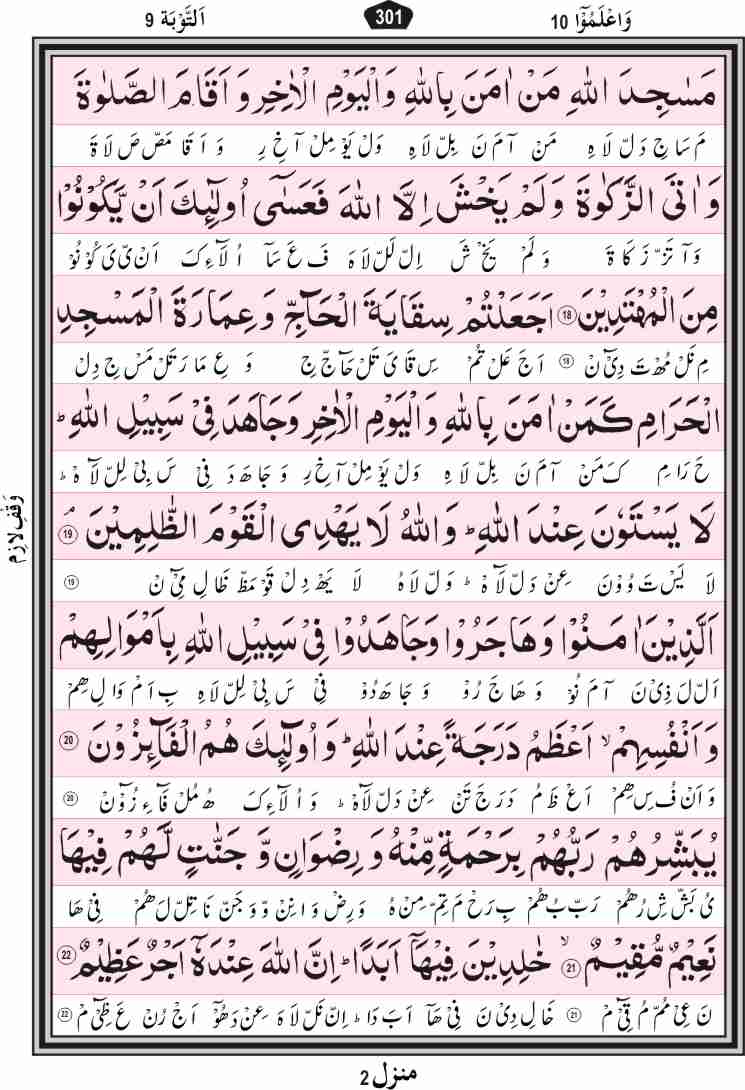 وَاعْلَمُوْٓا 10
301
اَلتَّوْبَة 9
مَسٰجِدَ اللّٰهِ مَنْ اٰمَنَ بِاللّٰهِ وَالْيَوْمِ الْاٰخِرِ وَ اَقَامَ الصَّلٰوةَ
مَ سَا جِ دَ لّ لَا هِ مَنْ آ مَ نَ بِلّ لَا هِ وَلْ يَوْ مِلْ آ خِ رِ وَ اَ قَا مَصّ صَ لَا ةَ
وَ اٰتَى الزَّكٰوةَ وَ لَمْ يَخْشَ اِلَّا اللّٰهَ فَعَسٰٓى اُولٰٓئِكَ اَنْ يَّكُوْنُوْا
وَ آ تَزّ زَ كَا ةَ وَ لَمْ يَخْ شَ اِل لَلّ لَا هَ فَ عَ سَآ اُ لَآءِ كَ اَنْ یّ یَ كُوْ نُوْ
مِنَ الْمُهْتَدِيْنَ ⑱ اَجَعَلْتُمْ سِقَايَةَ الْحَآجِّ وَ عِمَارَةَ الْمَسْجِدِ
مِ نَلْ مُهْ تَ دِیْٓ نْ ⑱ اَ جَ عَلْ تُمْ سِ قَا یَ تَلْ حَآجّ جِ وَ عِ مَا رَ تَلْ مَسْ جِ دِلْ
الْحَرَامِ كَمَنْ اٰمَنَ بِاللّٰهِ وَ الْيَوْمِ الْاٰخِرِ وَ جَاهَدَ فِیْ سَبِيْلِ اللّٰهِ ؕ
حَ رَا مِ كَ مَنْ آ مَ نَ بِلّ لَا هِ وَلْ يَوْ مِلْ آ خِ رِ وَ جَا هَ دَ فِیْ سَ بِیْ لِلّ لَآ هْ ؕ
لَا يَسْتَوٗنَ عِنْدَ اللّٰهِ ؕ وَاللّٰهُ لَا يَهْدِی الْقَوْمَ الظّٰلِمِيْنَ ۘ ⑲
لَا يَسْ تَ وُوْ نَ عِنْ دَلّ لَآ هْ ؕ وَلّ لَا هُ لَا يَهْ دِلْ قَوْ مَظّ ظَا لِ مِیْٓ نْ ⑲
وقف لازم
اَلَّذِيْنَ اٰمَنُوْا وَ هَاجَرُوْا وَ جَاهَدُوْا فِیْ سَبِيْلِ اللّٰهِ بِاَمْوَالِهِمْ
اَلّ لَ ذِیْ نَ آ مَ نُوْ وَ هَا جَ رُوْ وَ جَا هَ دُوْ فِیْ سَ بِیْ لِلّ لَا هِ بِ اَمْ وَا لِ هِمْ
وَ اَنْفُسِهِمْ ۙ اَعْظَمُ دَرَجَةً عِنْدَ اللّٰهِ ؕ وَ اُولٰٓئِكَ هُمُ الْفَآئِزُوْنَ ⑳
وَ اَنْ فُ سِ هِمْ اَعْ ظَ مُ دَ رَ جَ تَنْ عِنْ دَلّ لَآ هْ ؕ وَ اُ لَآءِ كَ هُ مُلْ فَآ ءِ زُوْٓ نْ ⑳
يُبَشِّرُهُمْ رَبُّهُمْ بِرَحْمَةٍ مِّنْهُ وَ رِضْوَانٍ وَّ جَنّٰتٍ لَّهُمْ فِيْهَا
یُ بَشّ شِ رُ هُمْ رَبّ بُ هُمْ بِ رَحْ مَ تِمّ مِنْ هُ وَ رِضْ وَا نِنْ وّ وَ جَنّ نَا تِلّ لَ هُمْ فِیْ هَا
نَعِيْمٌ مُّقِيْمٌ ۙ ㉑ خٰلِدِيْنَ فِيْهَاۤ اَبَدًا ؕ اِنَّ اللّٰهَ عِنْدَهٗۤ اَجْرٌ عَظِيْمٌ ㉒
نَ عِیْ مُمّ مُ قِیْٓ مْ ㉑ خَا لِ دِیْ نَ فِیْ هَآ اَ بَ دَا ؕ اِنّ نَلّ لَا هَ عِنْ دَ هُوْٓ اَجْ رُنْ عَ ظِیْٓ مْ ㉒
منزل 2